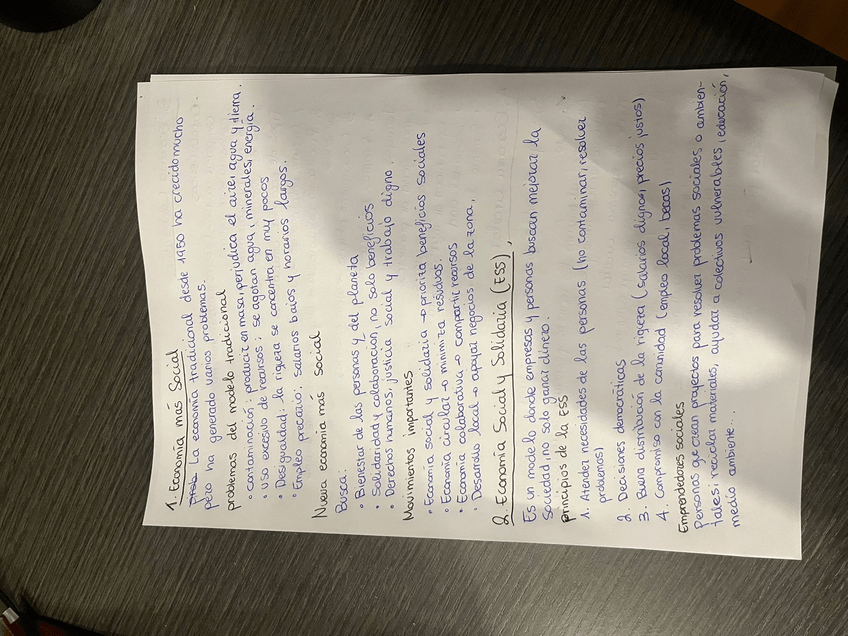 1. Economía más Social
La economía tradicional desde 1950 ha crecido mucho
pero ha generado varios problemas.
problemas del modelo tradicional
• contaminación; producir en masa, perjudica el aire, agua y tierra.
• Uso excesivo de recursos; se agotan agua, minerales, energía.
• Desigualdad: la riqeza se concentra en muy pocos
• Empleo precario; salarios bajos y horarios largos.
Nueva economía más social
Busca:
• Bienestar de las personas y del planeta
• Solidaridad y colaboración, no solo beneficios
• Derechos humanos, justicia social y trabajo digno.
Movimientos importantes
• Economía social y solidaria → prioriza beneficios sociales
• Economía circular → minimiza residuos.
• Economía colaborativa → compartir recursos
• Desarrollo local → apoyar negocios de la zona.
2. Economía Social y Solidaria (ESS).
Es un modelo donde empresas y personas buscan mejorar la
sociedad, no solo ganar dinero.
principios de la ESS
1. Atender necesidades de las personas (no contaminar, resolver
problemas)
2. Decisiones democráticas
3. Buena distribución de la riqeza (salarios dignos, precios justos)
4. Compromiso con la comunidad (empleo local, becas)
Emprendedores sociales
Personas que crean proyectos para resolver problemas sociales o ambien-
tales; reciclar materiales, ayudar a colectivos vulnerables, educación,
medio ambiente...